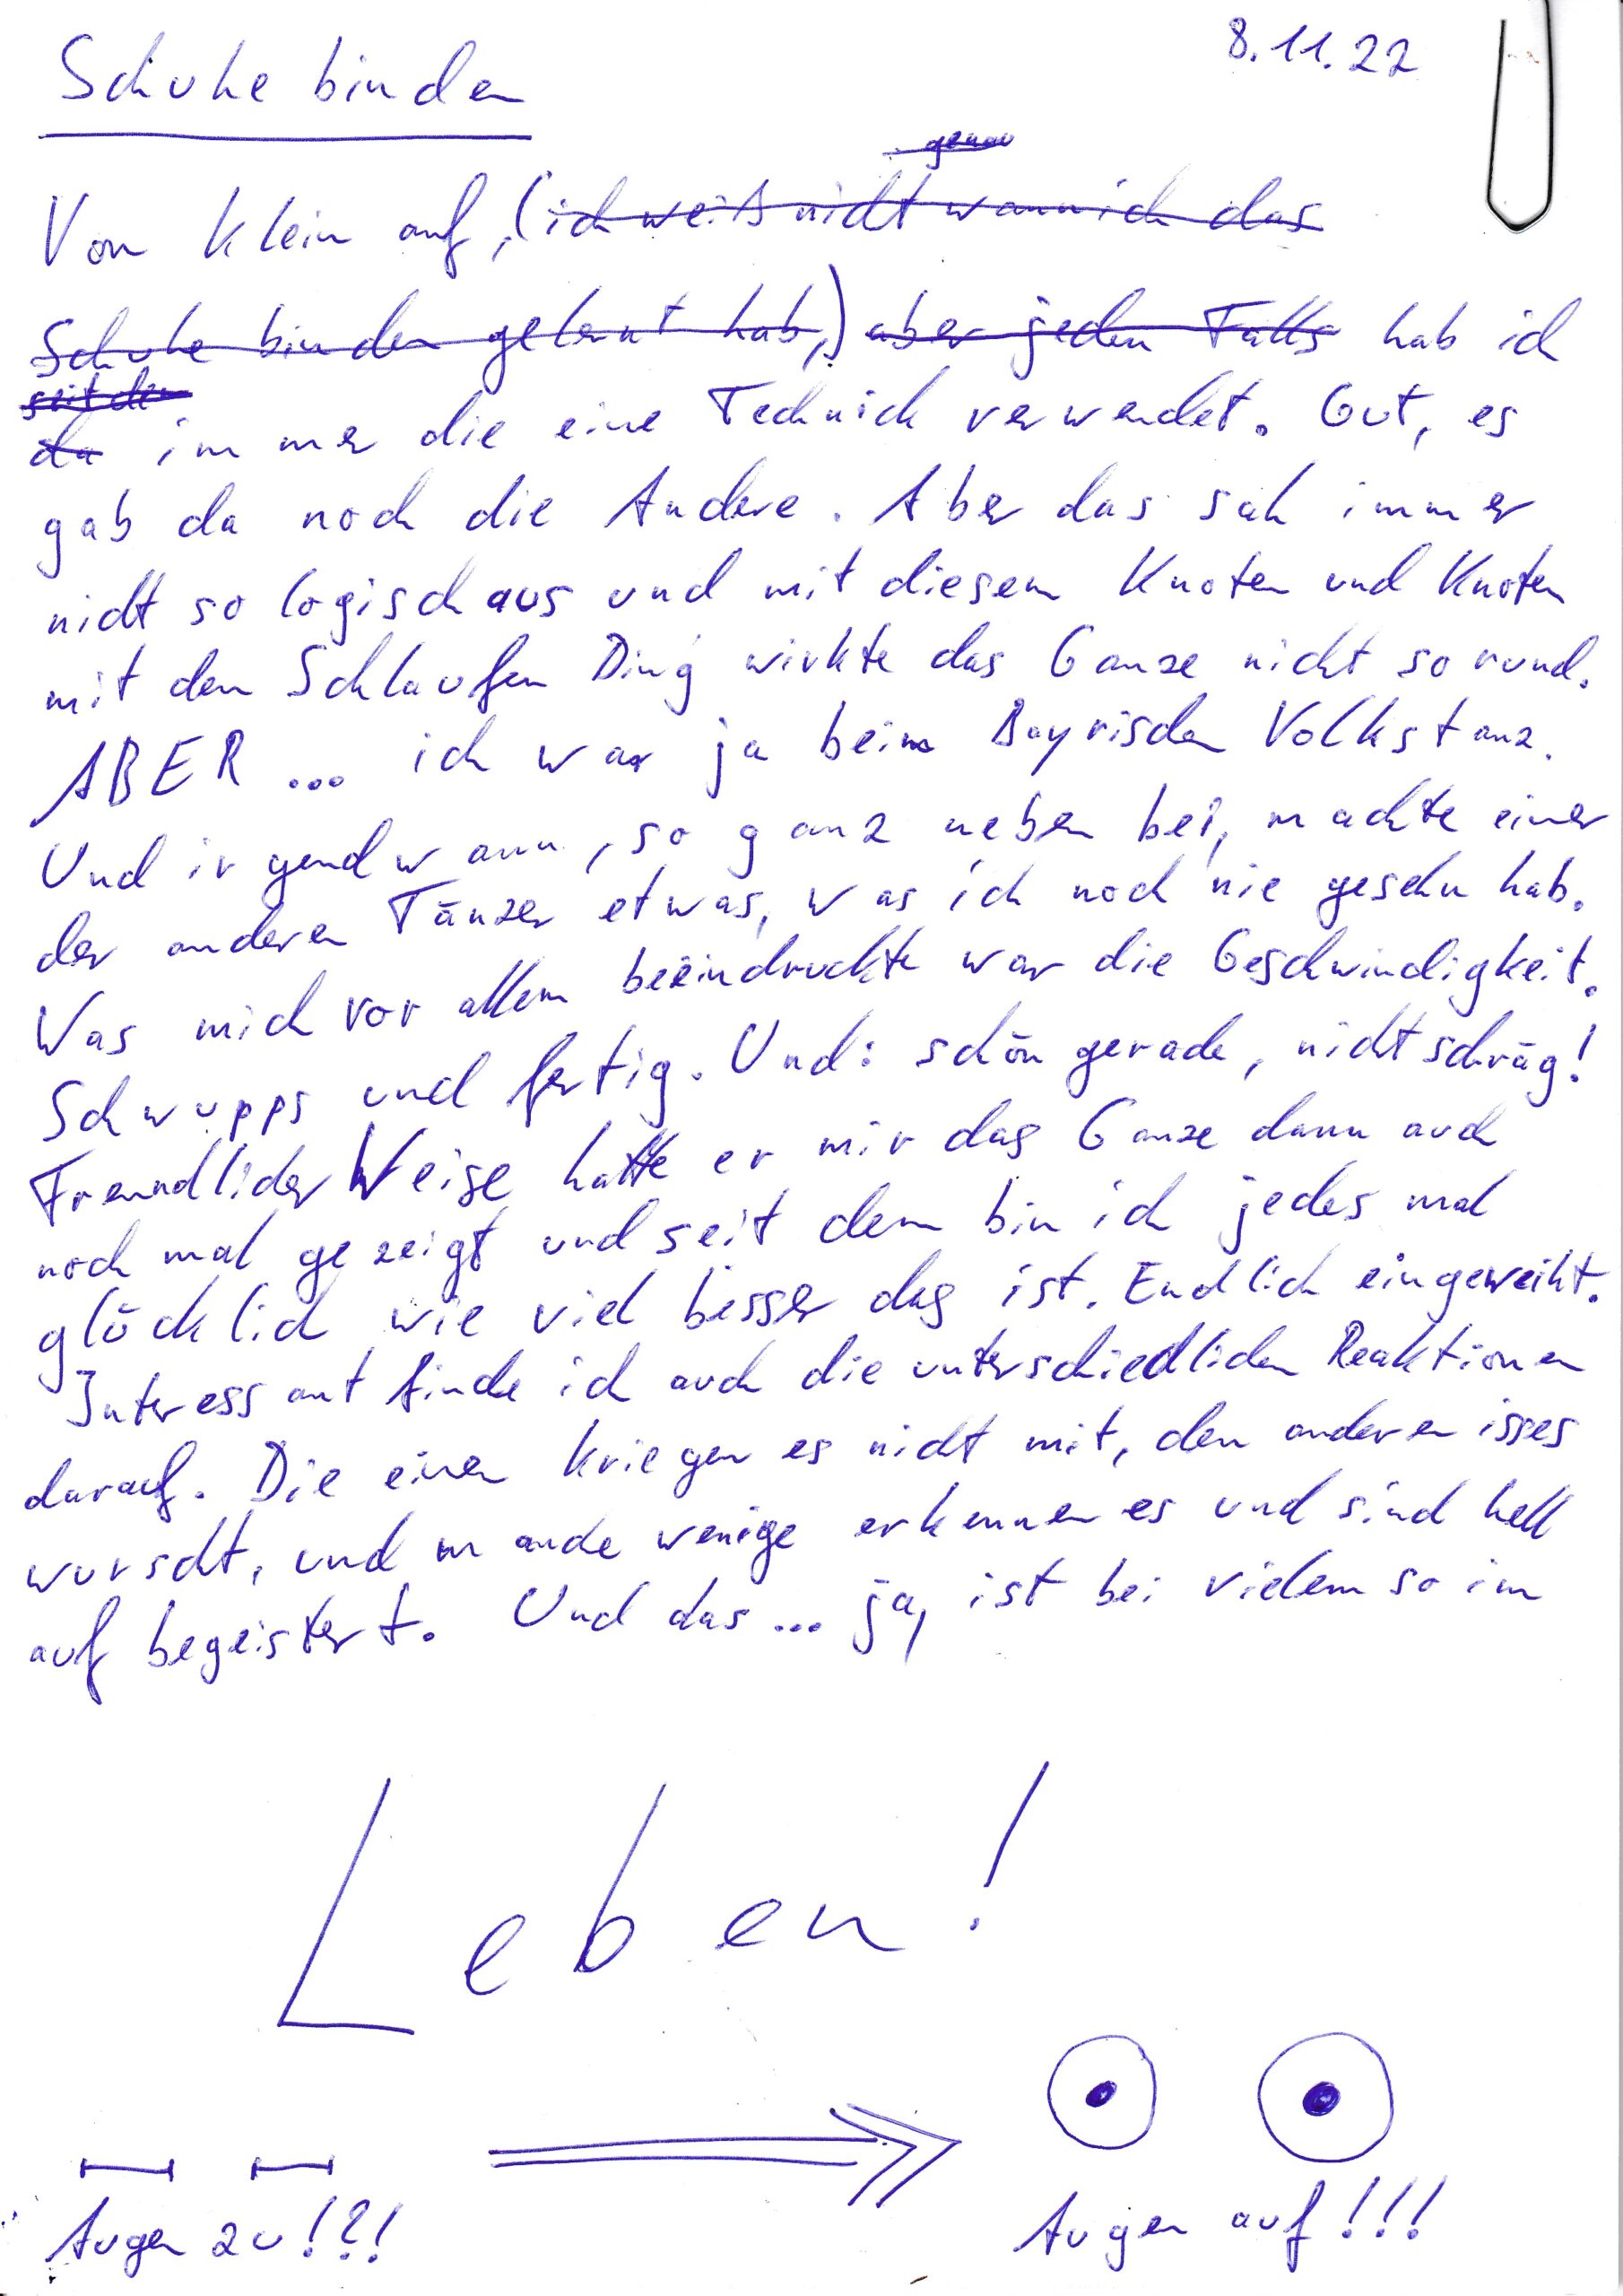 8.11.22
Schuhe binden
genau
Von klein auf, (ich weiß nicht wann ich das
Schuhe binden gelernt hab,) aber jeden Falls hab ich
seit dem
da immer die eine Technick verwendet. Gut, es
gab da noch die Andere. Aber das sah immer
nicht so logisch aus und mit diesem Knoten und Knoten
mit den Schlaufen Ding wirkte das Ganze nicht so rund.
ABER ... ich war ja beim Bayrischen Volkstanz.
Und irgendwann, so ganz neben bei, machte einer
der anderen Tänzer etwas, was ich noch nie gesehn hab.
Was mich vor allem beeindruckte war die Geschwindigkeit.
Schwupps und fertig. Und: schön gerade, nicht schräg!
Freundlicher Weise hatte er mir das Ganze dann auch
noch mal gezeigt und seit dem bin ich jedes mal
glücklich wie viel besser das ist. Endlich eingeweiht.
Interessant finde ich auch die unterschiedlichen Reaktionen
darauf. Die einen kriegen es nicht mit, den anderen isses
wurscht, und manche wenige erkennen es und sind hell
auf begeistert. Und das ... ja, ist bei vielem so im
Leben!
Augen zu!?! Augen auf!!!